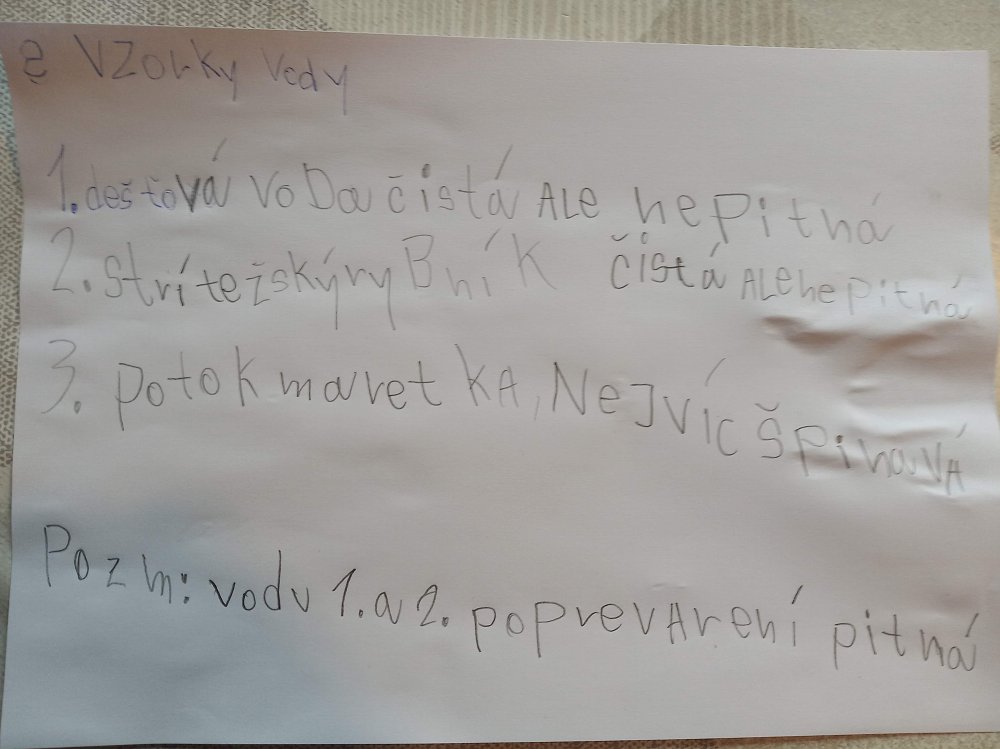 e vzorky vody
1. dešťová voDa čistá ALe nepitná
2. strítežský ryBník čistá ALe nepitná
3. potok maretkA, NeJvíc špinavÁ
Pozn: vodu 1. a 2. poprevArení pitná